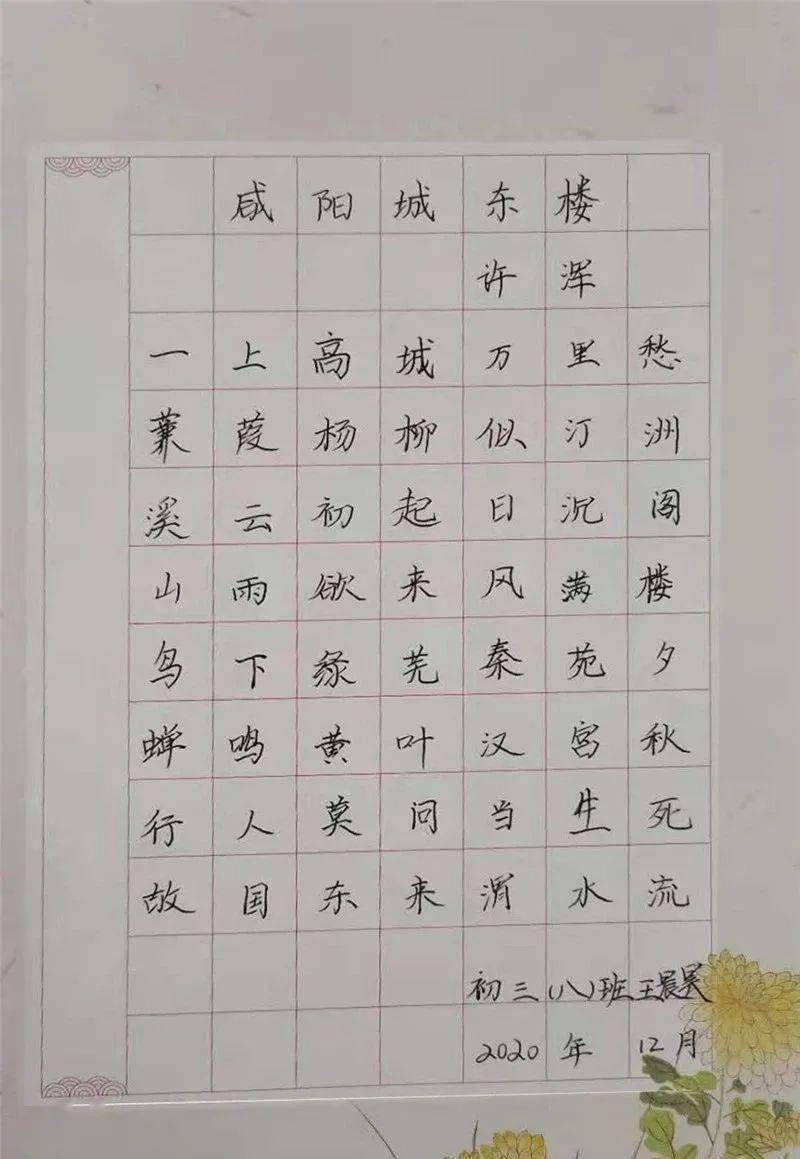 咸阳城东楼
许浑
一上高城万里愁
蒹葭杨柳似汀洲
溪云初起日沉阁
山雨欲来风满楼
鸟下绿芜秦苑夕
蝉鸣黄叶汉宫秋
行人莫问当生死
故国东来渭水流
初三(八)班王晨昊
2020年12月